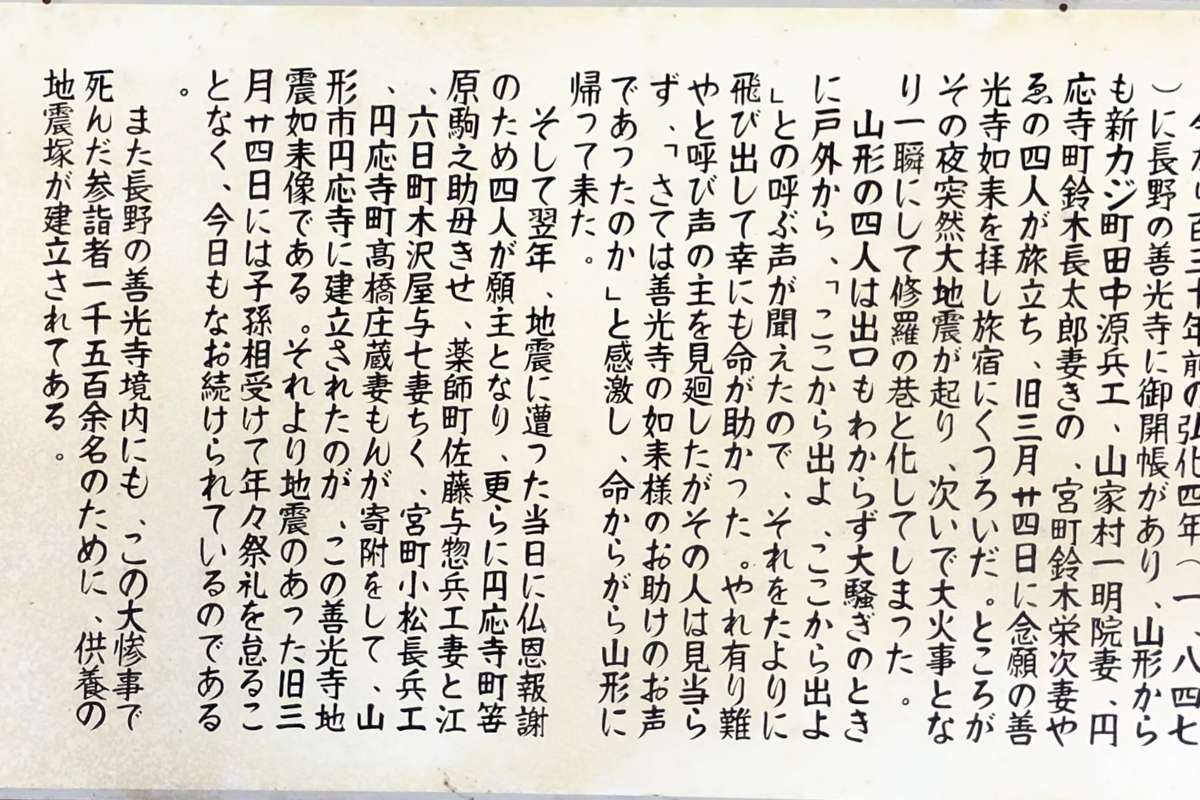 今から百三十年前の弘化四年(一八四七
)に長野の善光寺に御開帳があり、山形から
も新カジ町田中源兵工、山家村一明院妻、円
応寺町鈴木長太郎妻きの、宮町鈴木栄次妻や
ゑの四人が旅立ち、旧三月廿四日に念願の善
光寺如来を拝し旅宿にくつろいだ。ところが
その夜突然大地震が起り、次いで大火事とな
り一瞬にして修羅の巷と化してしまった。
山形の四人は出口もわからず大騒ぎのとき
に戸外から、「ここから出よ、ここから出よ
」との呼ぶ声が聞えたので、それをたよりに
飛び出して幸にも命が助かった。やれ有り難
やと呼び声の主を見廻したがその人は見当ら
ず、「さては善光寺の如来様のお助けのお声
であったのか」と感激し、命からがら山形に
帰って来た。
そして翌年、地震に遭った当日に仏恩報謝
のため四人が願主となり、更らに円応寺町笒
原駒之助母きせ、薬師町佐藤与惣兵工妻と江
、六日町木沢屋与七妻ちく、宮町小松長兵工
、円応寺町髙橋庄蔵妻もんが寄附をして、山
形市円応寺に建立されたのが、この善光寺地
震如来像である。それより地震のあった旧三
月廿四日には子孫相受けて年々祭礼を怠るこ
となく、今日もなお続けられているのである
。
また長野の善光寺境内にも、この大惨事で
死んだ参詣者一千五百余名のために、供養の
地震塚が建立されてある。